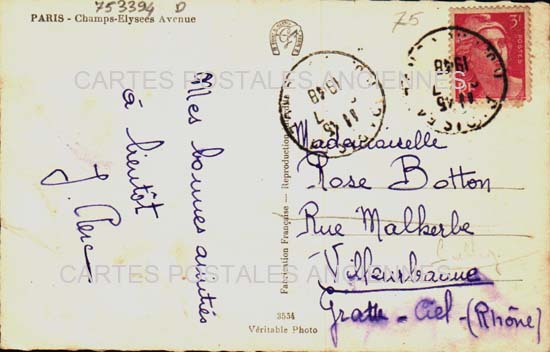 753394 D
PARIS - Champs-Elysées Avenue
75
3F
POSTES
11 45
7
1948
11 45
7
1948
CARTES POSTALES ANCIENNES
Mes bonnes amitiés
à bientôt
Mademoiselle
Rose Botton
Rue Malherbe
Villeurbanne
Gratte-Ciel-(Rhône)
Fabrication Française - Reproduction
CARTES POSTALES ANCIENNES
3534
Véritable Photo